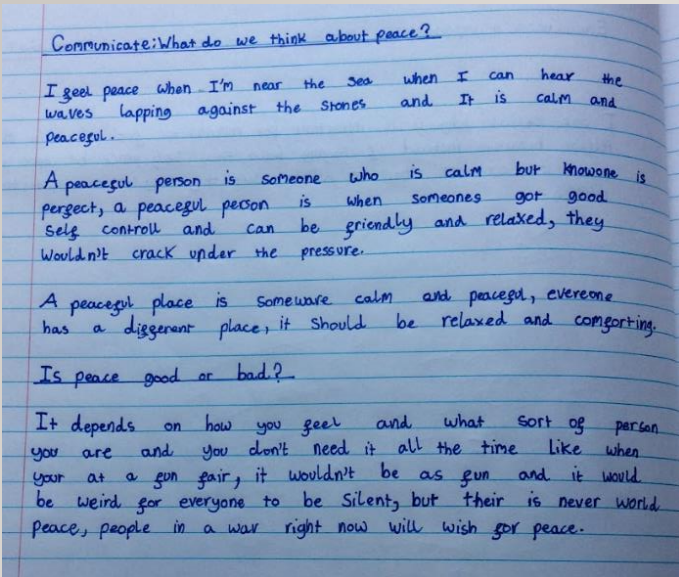 Communicate: What do we think about peace?
I feel peace when I'm near the sea when I can hear the
waves lapping against the stones and It is calm and
peaceful.
A peaceful person is someone who is calm but knowone is
perfect, a peaceful person is when someones got good
self controll and can be friendly and relaxed, they
wouldn't crack under the pressure.
A peaceful place is someware calm and peaceful, evereone
has a different place, it should be relaxed and comforting.
Is peace good or bad?
It depends on how you feel and what sort of person
you are and you don't need it all the time like when
your at a fun fair, it wouldn't be as fun and it would
be weird for everyone to be silent, but their is never world
peace, people in a war right now will wish for peace.